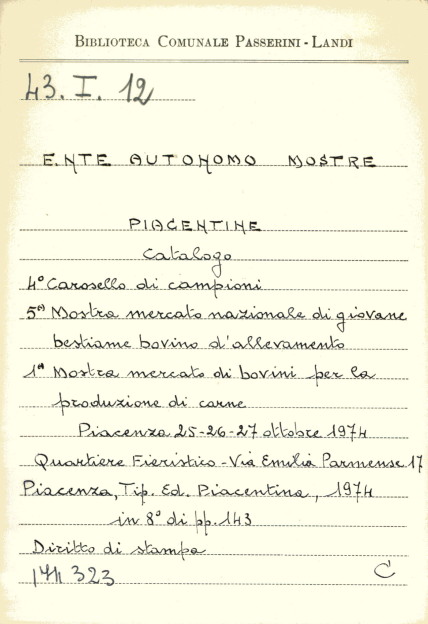 BIBLIOTECA COMUNALE PASSERINI - LANDI
43. I. 12
ENTE AUTONOMO MOSTRE
PIACENTINE
Catalogo
4° Carosello di campioni
5ª Mostra mercato nazionale di giovane
bestiame bovino d'allevamento
1ª Mostra mercato di bovini per la
produzione di carne
Piacenza 25-26-27 ottobre 1974
Quartiere Fieristico - Via Emilia Parmense 17
Piacenza, Tip. Ed. Piacentina, 1974
in 8° di pp. 143
Diritto di stampa
323
C